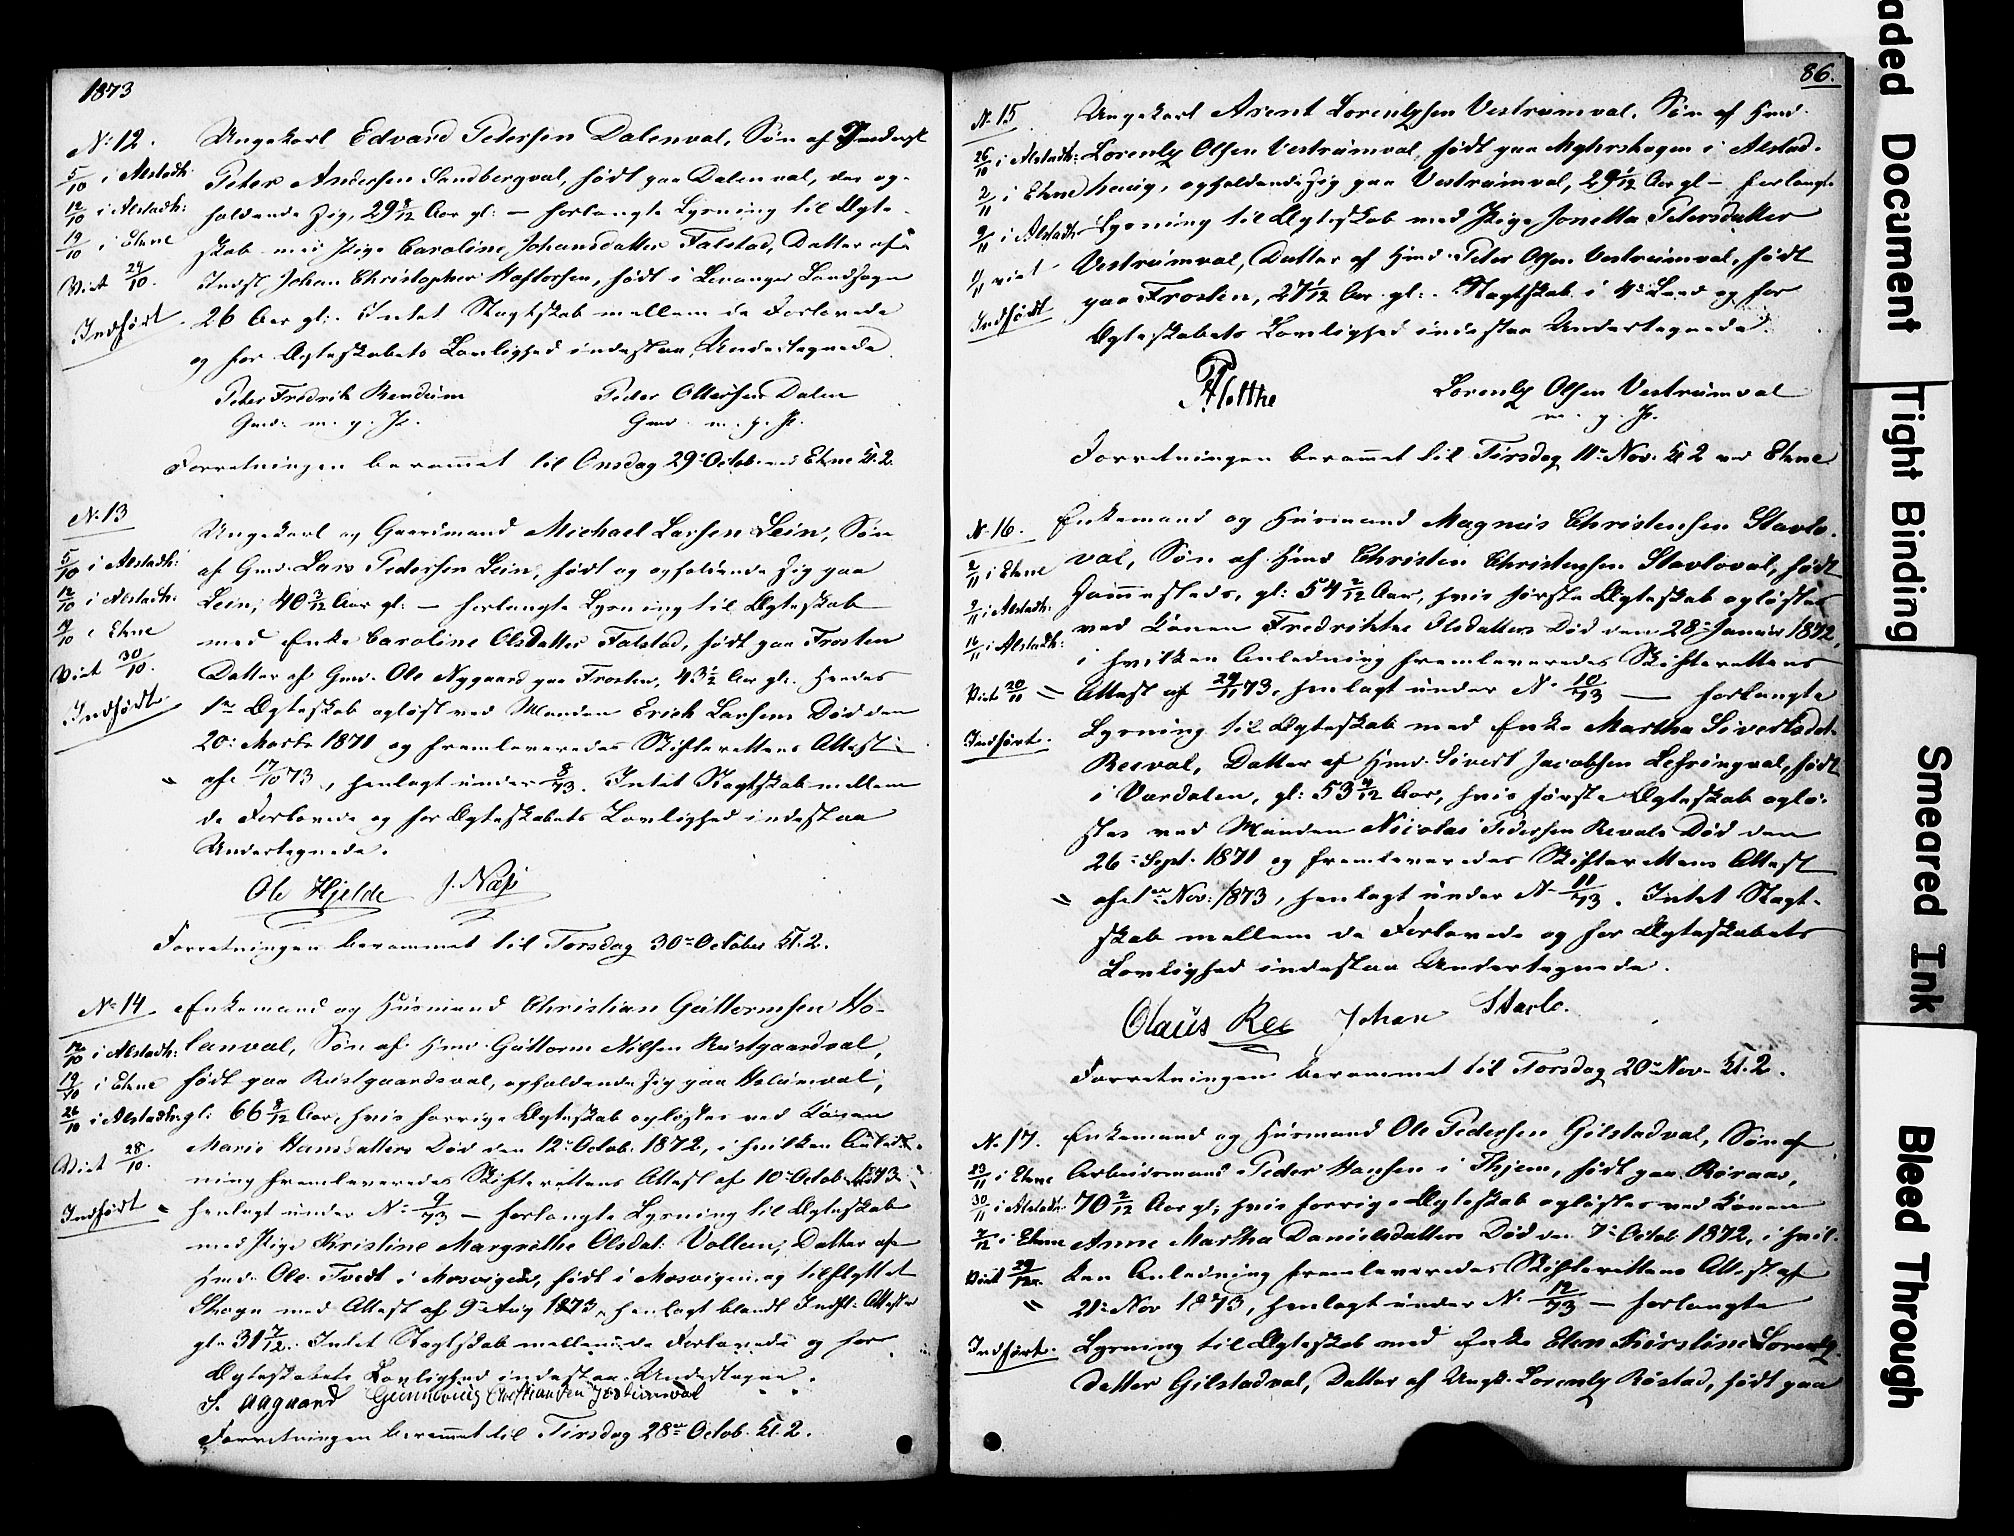 1873
N: 12.
Ungekarl Edvard Petersen Dalenval, Søn af Inderst
5/10 i Alstadh:
Peter Andersen Sandbergval, født paa Dalenval, der op-
12/10 i Alstadh:
holdende sig, 29 8/12 Aar gl: – forlangte Lysning til Ægte-
19/10 i Ekne
skab med Pige Caroline Johansdatter Falstad, Datter af
Viet 29/10.
Indst Johan Christopher født i Levanger Landsogn
Indført
26 Aar gl:. Intet Slagtskab mellem de Forlovede
og for Ægteskabets Lovlighed indestaa Undertegnede.
Peter Fredrik Rendum Peder Ottersen Dalen
Gmd: m. p. P. Gmd. m. p. P.
Forretningen berammet til Onsdag 29de Octob. ved Ekne Kl. 2.
N: 13
Ungekarl og Gaardmand Michael Larsen Lein, Søn
5/10 i Alstadh:
af Gmd. Lars Pedersen Lein, født og opholdende sig paa
12/10 i Alstadh:
Lein, 40 3/12 Aar gl: – forlangte Lysning til Ægteskab
19/10 i Ekne
med Enke Caroline Olsdatter Falstad, født paa Frosten
Viet 30/10.
Datter af Gmd. Ole Nygaard paa Frosten, 43 1/2 Aar gl:. Hendes
Indført
1ste Ægteskab opløst ved Manden Erich Larsens Død den
20: Marts 1871 og fremleveredes Skifterettens Attest
" af 17/10 73, henlagt under 8/73. Intet Slagtskab mellem
de Forlovede og for Ægteskabets Lovlighed indestaa
Undertegnede.
Ole Hjelde J. Næss
Forretningen berammet til Torsdag 30te October Kl. 2.
No 14
Enkemand og Husmand Christian Guttormsen Ho-
12/10 i Alstadh:
lanval, Søn af Hmd. Guttorm Nilsen Rustgaardval,
19/10 i Ekne
født paa Rustgaardsval, opholdende sig paa Holanval,
26/10 i Alstadh:
gl: 66 8/12 Aar, hvis forrige Ægteskab opløstes ved Konen
Marie Hansdatters Død den 12te Octob. 1872, i hvilken Anled-
Viet 28/10.
ning fremleveredes Skifterettens Attest af 10de Octob. 1873
Indført "
henlagt under No 9/73 – forlangte Lysning til Ægteskab
med Pige Kristine Margrethe Olsdat: Vollen, Datter af
Hmd. Ole Tvedt i Mosvigen, født i Mosvigen og tilflyttet
Skogn med Attest af 9de Aug 1873, henlagt blandt Indfl: Attester
gl. 31 7/12. Intet Slagtskab mellem de Forlovede og for
Ægteskabets Lovlighed indestaa Undertegnede.
S. Aagaard Christiansen
Forretningen berammet til Tirsdag 28de Octob. Kl. 2.
86.
No 15
Ungekarl Arent Lorentzsen Vestrumval, Søn af Hmd.
26/10 i Alstadh:
Lorentz Olsen Vestrumval, født paa Myhrshagen i Alstad-
2/11 i Ekne
houg, opholdende sig paa Vestrumval, 29 1/12 Aar gl – forlangte
9/11 i Alstadh:
Lysning til Ægteskab med Pige Jonetta Petersdatter
11/11 viet
Vestrumval, Datter af Hmd. Peter Olsen Vestrumval, født
Indført
paa Frosten, 27 1/12 Aar gl:. Slagtskab i 4de Leed og for
Ægteskabets Lovlighed indestaa Undertegnede.
Lorentz Olsen Vestrumval
m. p. P.
Forretningen berammet til Tirsdag 11te Nov. Kl 2 ved Ekne
No 16.
Enkemand og Husmand Magnus Christensen Stavlo-
2/11 i Ekne
val, Søn af Hmd Christen Christensen Stavloval, født
9/11 i Alstadh:
sammesteds, gl: 54 2/12 Aar, hvis første Ægteskab opløstes
16/11 i Alstadh:
ved Konen Fredrikke Olsdatters Død den 28de Januar 1872,
i hvilken Anledning fremleveredes Skifterettens
Viet 20/11 "
Attest af 29/11 73, henlagt under No 10/73 – forlangte
Lysning til Ægteskab med Enke Martha Sivertsdat.
Indført.
Reeval, Datter af Hmd. Sivert Jacobsen født
i Værdalen, gl: 53 4/12 Aar, hvis første Ægteskab oplø-
stes ved Manden Nicolai Pedersen Revals Død den
26de Sept. 1871 og fremleveredes Skifterettens Attest
" af 1ste Nov: 1873, henlagt under No 11/73. Intet Slagt-
skab mellem de Forlovede og for Ægteskabets
Lovlighed indestaa Undertegnede.
Olaus Ree Johan Stavlo.
Forretningen berammet til Torsdag 20de Nov. Kl. 2.
No 17.
Enkemand og Husmand Ole Pedersen Gilstadval, Søn af
23/11 i Ekne
Arbeidsmand Peder Hansen i Thjem, født paa Røraas,
30/11 i Alstadh:
70 2/12 Aar gl; hvis forrige Ægteskab opløstes ved Konen
7/12 i Ekne
Anne Martha Danielsdatters Død den 7de Octob. 1872, i hvil-
Viet 29/12.
ken Anledning fremleveredes Skifterettens Attest af
"
21de Nov 1873, henlagt under No. 12/73 – forlangte
Indført.
Lysning til Ægteskab med Enke Elen Kirstine Lorentz-
datter Gilstadval, Datter af Ungk. Lorentz Røstad, født paa
aded Document
Tight Binding
Smeared Ink
Bleed Through